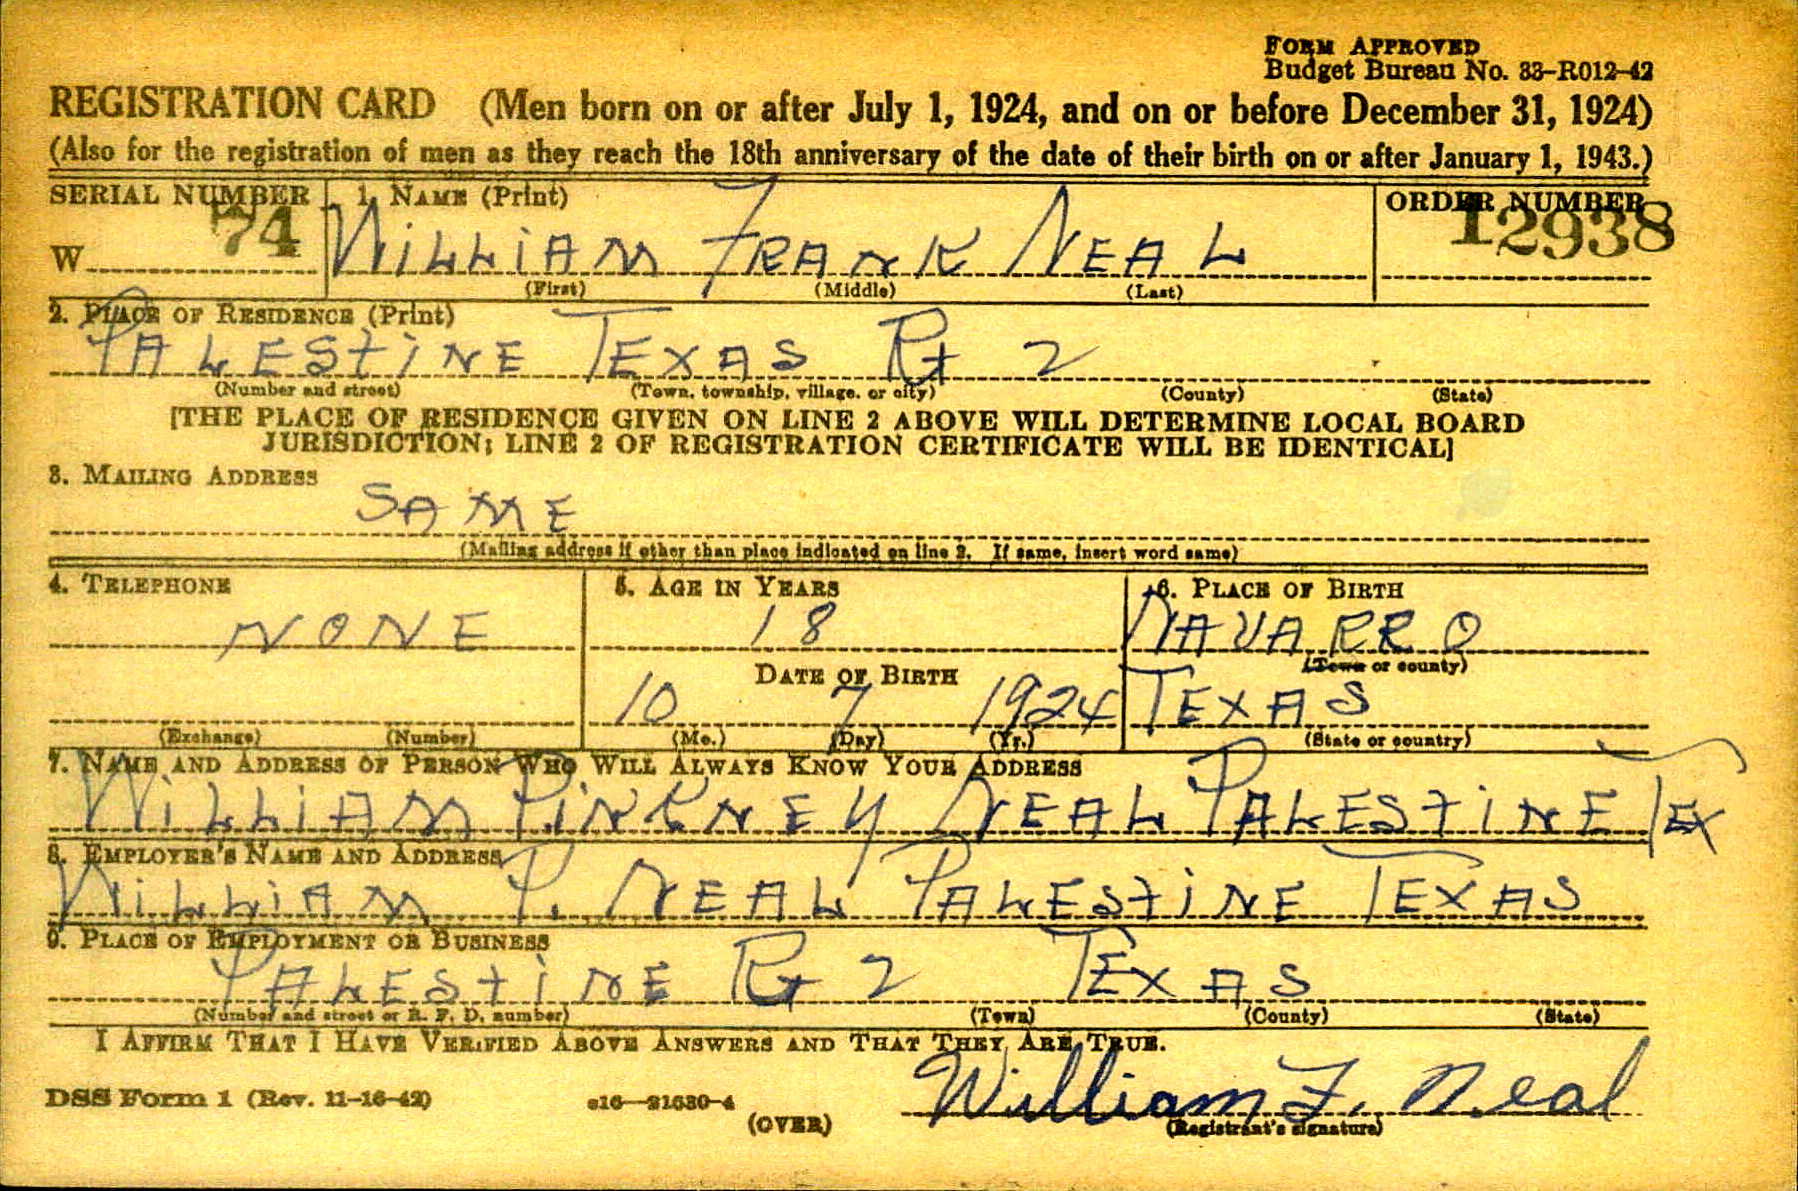 FORM APPROVED
Budget Bureau No. 33-R012-42
REGISTRATION CARD (Men born on or after July 1, 1924, and on or before December 31, 1924)
(Also for the registration of men as they reach the 18th anniversary of the date of their birth on or after January 1, 1943.)
SERIAL NUMBER 1. NAME (Print) ORDER NUMBER
W 74 WILLIAM FRANK NEAL 12938
(First) (Middle) (Last)
2. PLACE OF RESIDENCE (Print)
PALESTINE TEXAS Rt 2
(Number and street) (Town, township, village, or city) (County) (State)
[THE PLACE OF RESIDENCE GIVEN ON LINE 2 ABOVE WILL DETERMINE LOCAL BOARD
JURISDICTION; LINE 2 OF REGISTRATION CERTIFICATE WILL BE IDENTICAL]
3. MAILING ADDRESS
SAME
(Mailing address if other than place indicated on line 2. If same, insert word same)
4. TELEPHONE 5. AGE IN YEARS 6. PLACE OF BIRTH
NONE 18 NAVARRO
(Town or county)
DATE OF BIRTH
10 7 1924 TEXAS
(Exchange) (Number) (Mo.) (Day) (Yr.) (State or country)
7. NAME AND ADDRESS OF PERSON WHO WILL ALWAYS KNOW YOUR ADDRESS
WILLIAM PINKNEY NEAL PALESTINE TEX
8. EMPLOYER'S NAME AND ADDRESS
WILLIAM P. NEAL PALESTINE TEXAS
9. PLACE OF EMPLOYMENT OR BUSINESS
PALESTINE Rt 2 TEXAS
(Number and street or R. F. D. number) (Town) (County) (State)
I AFFIRM THAT I HAVE VERIFIED ABOVE ANSWERS AND THAT THEY ARE TRUE.
DSS Form 1 (Rev. 11-16-42) 16—21630-4 William F. Neal
(OVER) (Registrant's signature)